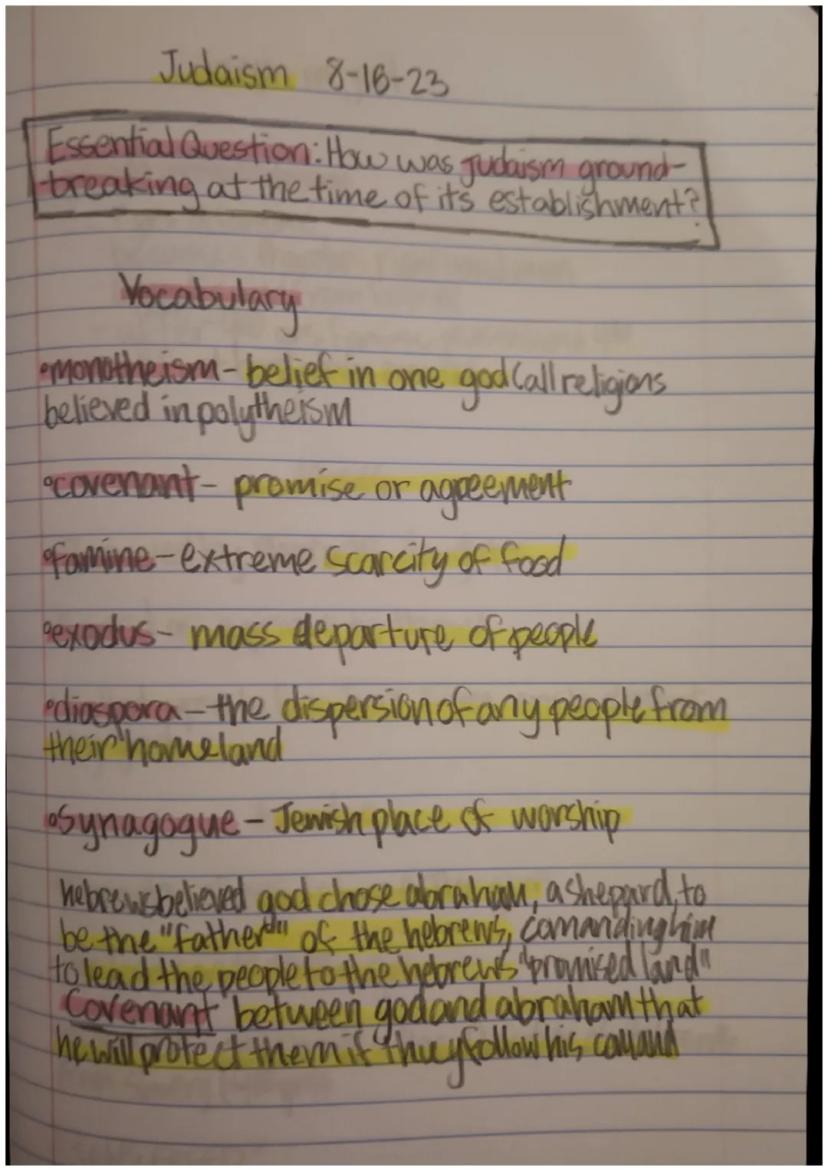 Judaism 8-16-23
Essential Question: How was Judaism ground-
breaking at the time of its establishment?
Vocabulary
•monotheism - belief in one god (all religions
believed in polytheism
•covenant - promise or agreement
•famine - extreme scarcity of food
•exodus - mass departure of people
•diaspora - the dispersion of any people from
their homeland
•synagogue - Jewish place of worship
hebrews believed god chose abraham, a shepard, to
be the "father" of the hebrews, comanding him
to lead the people to the hebrews "promised land"
Covenant between god and abraham that
he will protect them if they follow his comand